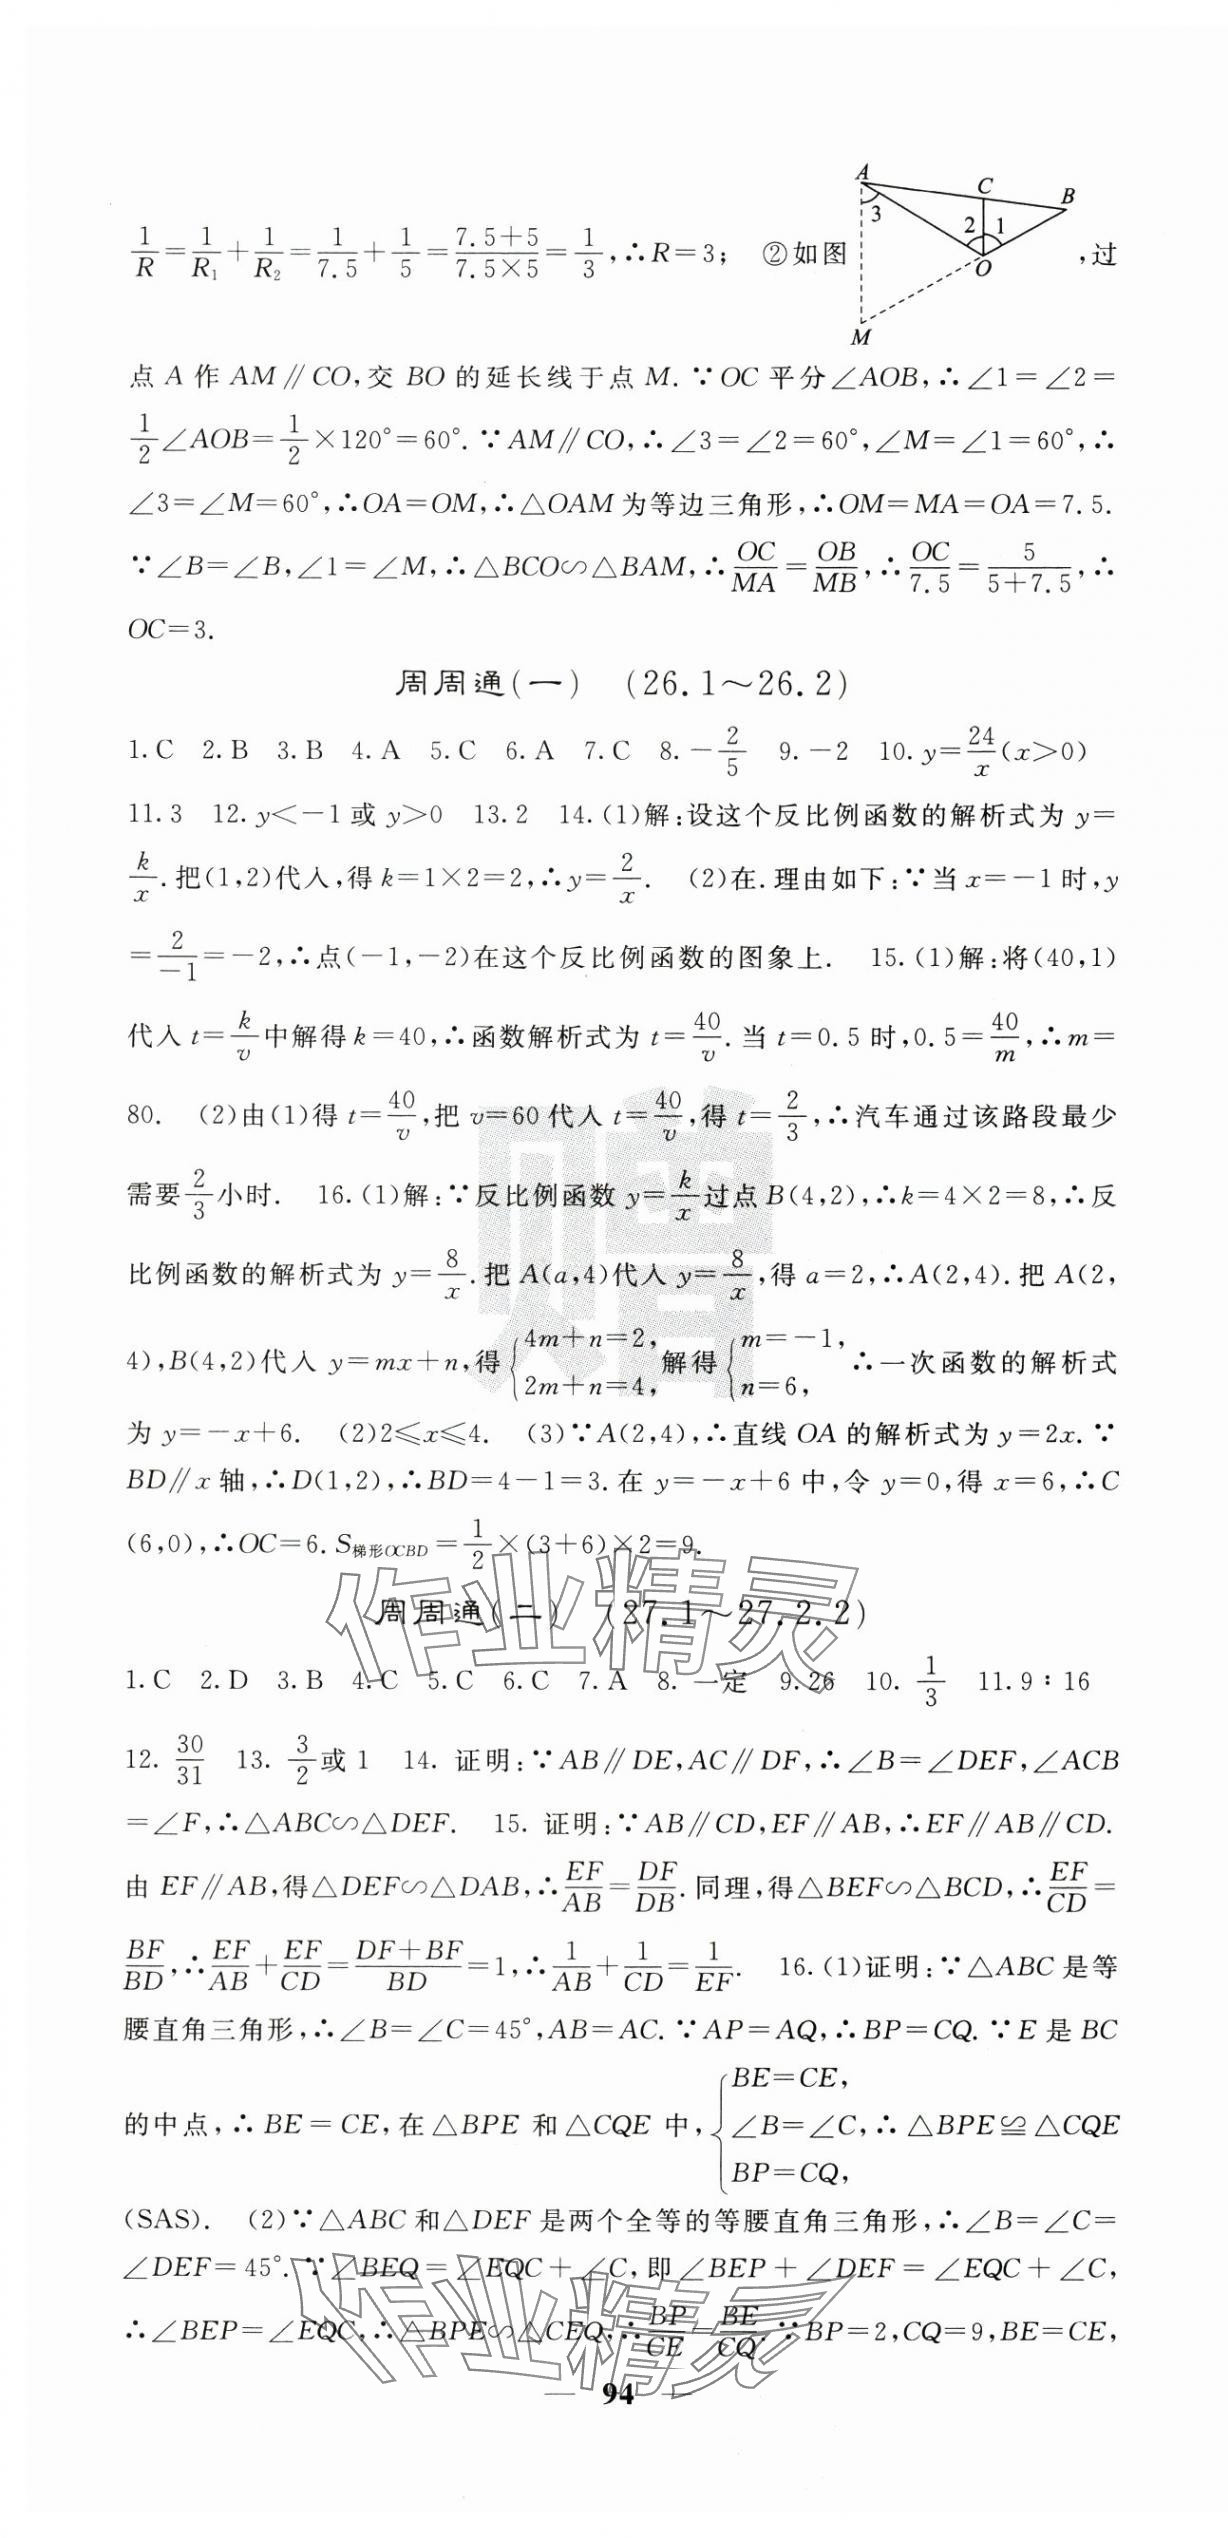 1/R=1/R₁+1/R₂=1/7.5+1/5=(7.5+5)/(7.5×5)=1/3,∴R=3; ②如图 A C B 3 2 1 O M ,过
点 A 作 AM∥CO,交 BO 的延长线于点 M. ∵OC 平分∠AOB,∴∠1=∠2=
1/2∠AOB=1/2×120°=60°. ∵AM∥CO,∴∠3=∠2=60°,∠M=∠1=60°,∴
∠3=∠M=60°,∴OA=OM,∴△OAM 为等边三角形,∴OM=MA=OA=7.5.
∵∠B=∠B,∠1=∠M,∴△BCO∽△BAM,∴OC/MA=OB/MB,∴OC/7.5=5/(5+7.5),∴
OC=3.
周周通(一) (26.1～26.2)
1.C 2.B 3.B 4.A 5.C 6.A 7.C 8.-2/5 9.-2 10.y=24/x(x>0)
11.3 12.y<-1或 y>0 13.2 14.(1)解:设这个反比例函数的解析式为 y=
k/x.把(1,2)代入,得 k=1×2=2,∴y=2/x. (2)在.理由如下:∵当 x=-1时,y
=2/-1=-2,∴点(-1,-2)在这个反比例函数的图象上. 15.(1)解:将(40,1)
代入 t=k/v中解得 k=40,∴函数解析式为 t=40/v.当 t=0.5时,0.5=40/m,∴m=
80. (2)由(1)得 t=40/v,把 v=60代入 t=40/v,得 t=2/3,∴汽车通过该路段最少
需要2/3小时. 16.(1)解:∵反比例函数 y=k/x过点 B(4,2),∴k=4×2=8,∴反
比例函数的解析式为 y=8/x.把 A(a,4)代入 y=8/x,得 a=2,∴A(2,4).把 A(2,
4),B(4,2)代入 y=mx+n,得{4m+n=2, 2m+n=4,解得{m=-1, n=6,∴一次函数的解析式
为 y=-x+6. (2)2≤x≤4. (3)∵A(2,4),∴直线 OA 的解析式为 y=2x. ∵
BD∥x 轴,∴D(1,2),∴BD=4-1=3.在 y=-x+6中,令 y=0,得 x=6,∴C
(6,0),∴OC=6.S梯形OCBD=1/2×(3+6)×2=9.
周周通(二) (27.1～27.2.2)
1.C 2.D 3.B 4.C 5.C 6.C 7.A 8. 一定 9.26 10. 1/3 11.9∶16
12. 30/31 13. 3/2或1 14. 证明:∵AB∥DE,AC∥DF,∴∠B=∠DEF,∠ACB
=∠F,∴△ABC∽△DEF. 15. 证明:∵AB∥CD,EF∥AB,∴EF∥AB∥CD.
由 EF∥AB,得△DEF∽△DAB,∴EF/AB=DF/DB.同理,得△BEF∽△BCD,∴EF/CD=
BF/BD,∴EF/AB+EF/CD=(DF+BF)/BD=1,∴1/AB+1/CD=1/EF. 16.(1)证明:∵△ABC 是等
腰直角三角形,∴∠B=∠C=45°,AB=AC. ∵AP=AQ,∴BP=CQ. ∵E 是 BC
的中点,∴BE=CE,在△BPE 和△CQE 中,{BE=CE, ∠B=∠C, BP=CQ,∴△BPE≌△CQE
(SAS). (2)∵△ABC 和△DEF 是两个全等的等腰直角三角形,∴∠B=∠C=
∠DEF=45°. ∵∠BEQ=∠EQC+∠C,即∠BEP+∠DEF=∠EQC+∠C,
∴∠BEP=∠EQC,∴△BPE∽△CEQ,∴BP/CE=BE/CQ. ∵BP=2,CQ=9,BE=CE,
— 94 —
赠
作业精灵
作业精灵